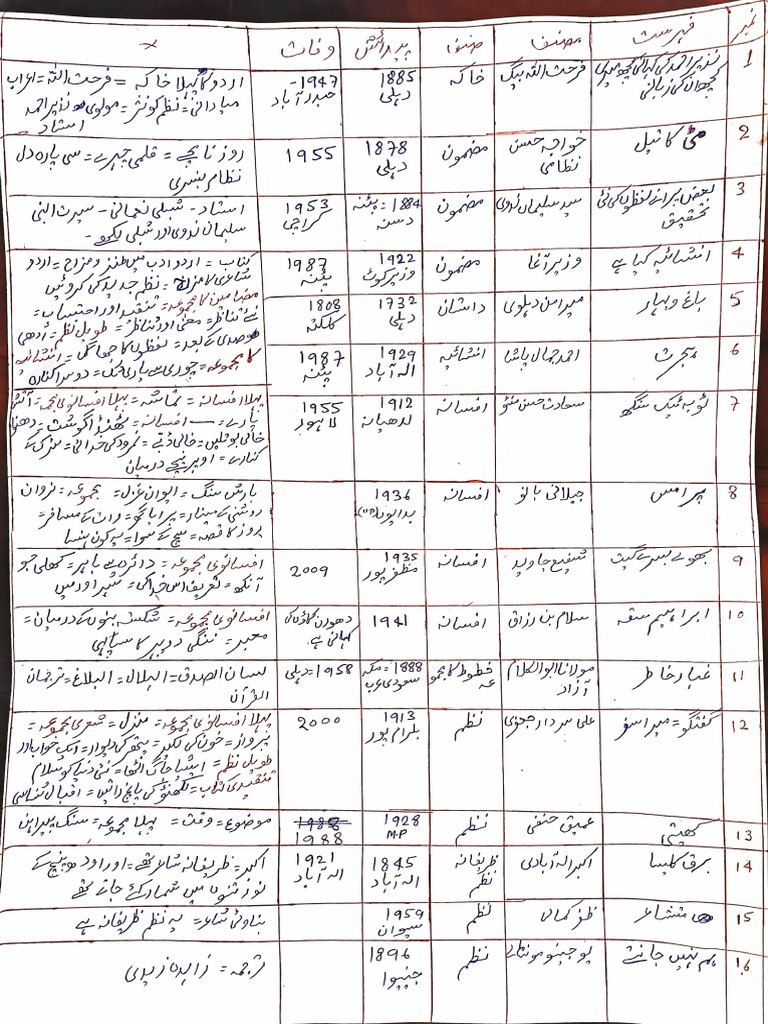 نمبر فہرست مصنف صنف پیدائش وفات ×
1 نذیر احمد کی کہانی کچھ میری کچھ ان کی زبانی فرحت اللہ بیگ خاکہ 1885 دہلی 1947- حیدرآباد
اردو کا پہلا خاکہ = فرحت اللہ =
نظم کو نثر = مولوی نذیر احمد
استاد
2 مٹی کا تیل خواجہ حسن نظامی مضمون 1878 دہلی 1955
روزنامچے = قلمی چہرے = سی پارہ دل
نظامی بنسری
3 بعض پرانے لفظوں کی نئی تحقیق سید سلیمان ندوی مضمون 1884 = پٹنہ دسنہ 1953 کراچی
استاد - شبلی نعمانی - سیرت النبی
سلیمان ندوی اور شبلی لکھو -
4 انشائیہ کیا ہے وزیر آغا مضمون 1922 وزیر کوٹ 1987 پٹنہ
کتاب = اردو ادب میں طنز و مزاح = اردو
شاعری کا مزاج = نظم جدید کی کروٹیں
مضامین کا مجموعہ = تنقید اور احتساب =
نئے تناظر = معنی اور تناظر = طویل نظم = آدھی
صدی کے بعد = انشائیہ
کا مجموعہ = چوری سے یاری تک = دوسرا کنارہ
5 باغ و بہار میر امن دہلوی داستان 1732 دہلی 1808 کلکتہ
6 ہجرت احمد جمال پاشا انشائیہ 1929 الہ آباد 1987 پٹنہ
7 ٹوبہ ٹیک سنگھ سعادت حسن منٹو افسانہ 1912 لدھیانہ 1955 لاہور
پہلا افسانہ = تماشہ = پہلا افسانوی مجموعہ = آتش
پارے — افسانہ = ٹھنڈا گوشت = دھواں
خالی بوتلیں = خالی ڈبے = نمرود کی خدائی = سڑک کے
کنارے = اوپر نیچے درمیان
8 پرامس جیلانی بانو افسانہ 1936 بدایوں (UP)
بارش سنگ = ایوان غزل = مجموعہ = نروان
روشنی کے مینار = پرایا گھر = رات کے مسافر =
روز کا قصہ = سچ کے سوا = یہ کون ہنسا
9 بھولے بسرے گیت شفیع جاوید افسانہ 1935 مظفرپور 2009
افسانوی مجموعہ = دائرہ سے باہر = کھلی جو
آنکھ = تعریف اس خدا کی =
10 ابراہیم سقہ سلام بن رزاق افسانہ 1941 کی کہانی ہے
افسانوی مجموعہ = شکستہ بتوں کے درمیان =
معبر = ننگی دوپہر کا سپاہی
11 غبار خاطر مولانا ابوالکلام آزاد خطوط کا مجموعہ 1888 = مکہ سعودی عرب 1958 = دہلی
لسان الصدق = الہلال = البلاغ = ترجمان
القرآن
12 گفتگو = میرا سفر علی سردار جعفری نظم 1913 بلرام پور 2000
پہلا افسانوی مجموعہ = منزل = شعری مجموعہ =
پرواز = خون کی لکیر = پتھر کی دیوار = ایک خواب اور
طویل نظم = ایشیا جاگ اٹھا = نئی دنیا کو سلام
تنقیدی کتاب = لکھنؤ کی پانچ راتیں = اقبال شناسی
13 کھیتی عمیق حنفی نظم 1928 M.P 1988 1988
موضوع = وقت = پہلا مجموعہ = سنگ پیراہن
14 برق کلیسا اکبر الہ آبادی ظریفانہ نظم 1845 الہ آباد 1921 الہ آباد
اکبر = ظریفانہ شاعر تھے = اور اودھ پنچ کے
نو رتنوں میں شمار کئے جاتے تھے
15 متشاعر ظفر کمالی نظم 1959 سیوان
بناوٹی شاعر = یہ نظم ظریفانہ ہے
16 ہم نہیں جانتے یوجینیو مونتالے نظم 1896 جنیوا
ترجمہ = زاہدہ زیدی